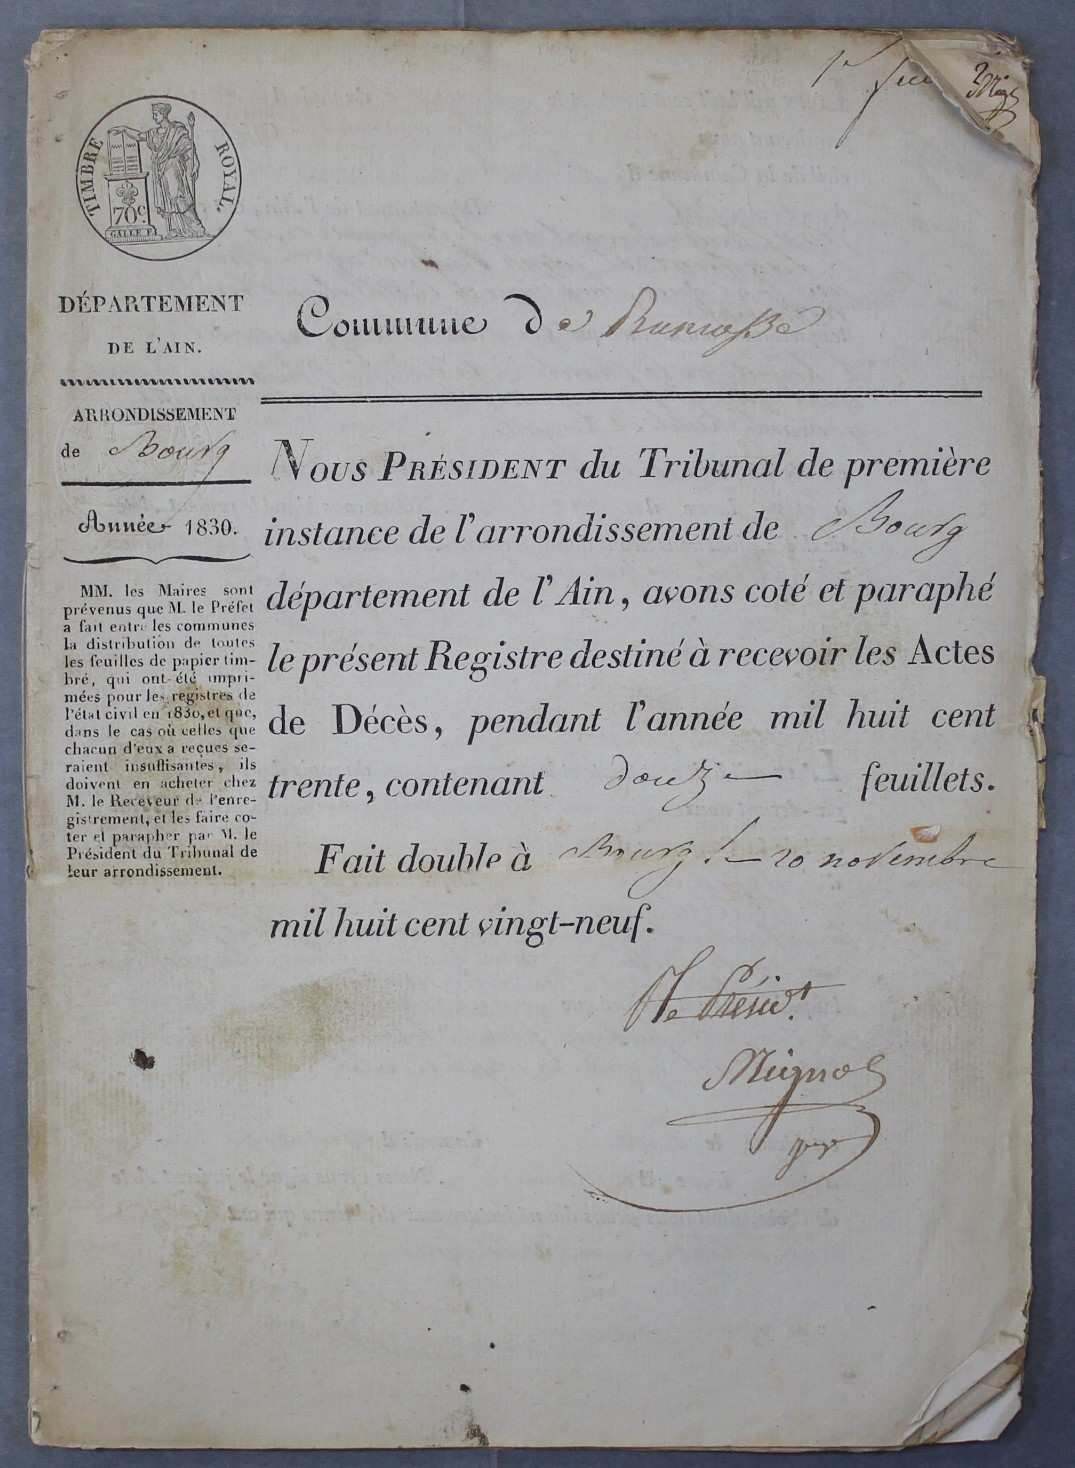 1er feu
TIMBRE ROYAL.
70c.
GALLE F.
DÉPARTEMENT
DE L'AIN.
ARRONDISSEMENT
de Bourg
Année 1830.
MM. les Maires sont
prévenus que M. le Préfet
a fait entre les communes
la distribution de toutes
les feuilles de papier tim-
bré, qui ont été impri-
mées pour les registres de
l'état civil en 1830, et que,
dans le cas où celles que
chacun d'eux a reçues se-
raient insuffisantes, ils
doivent en acheter chez
M. le Receveur de l'enre-
gistrement, et les faire co-
ter et parapher par M. le
Président du Tribunal de
leur arrondissement.
Commune de Ramasse
NOUS PRÉSIDENT du Tribunal de première
instance de l'arrondissement de Bourg
département de l'Ain, avons coté et paraphé
le présent Registre destiné à recevoir les Actes
de Décès, pendant l'année mil huit cent
trente, contenant douze feuillets.
Fait double à Bourg le 20 novembre
mil huit cent vingt-neuf.
Le Présidt.